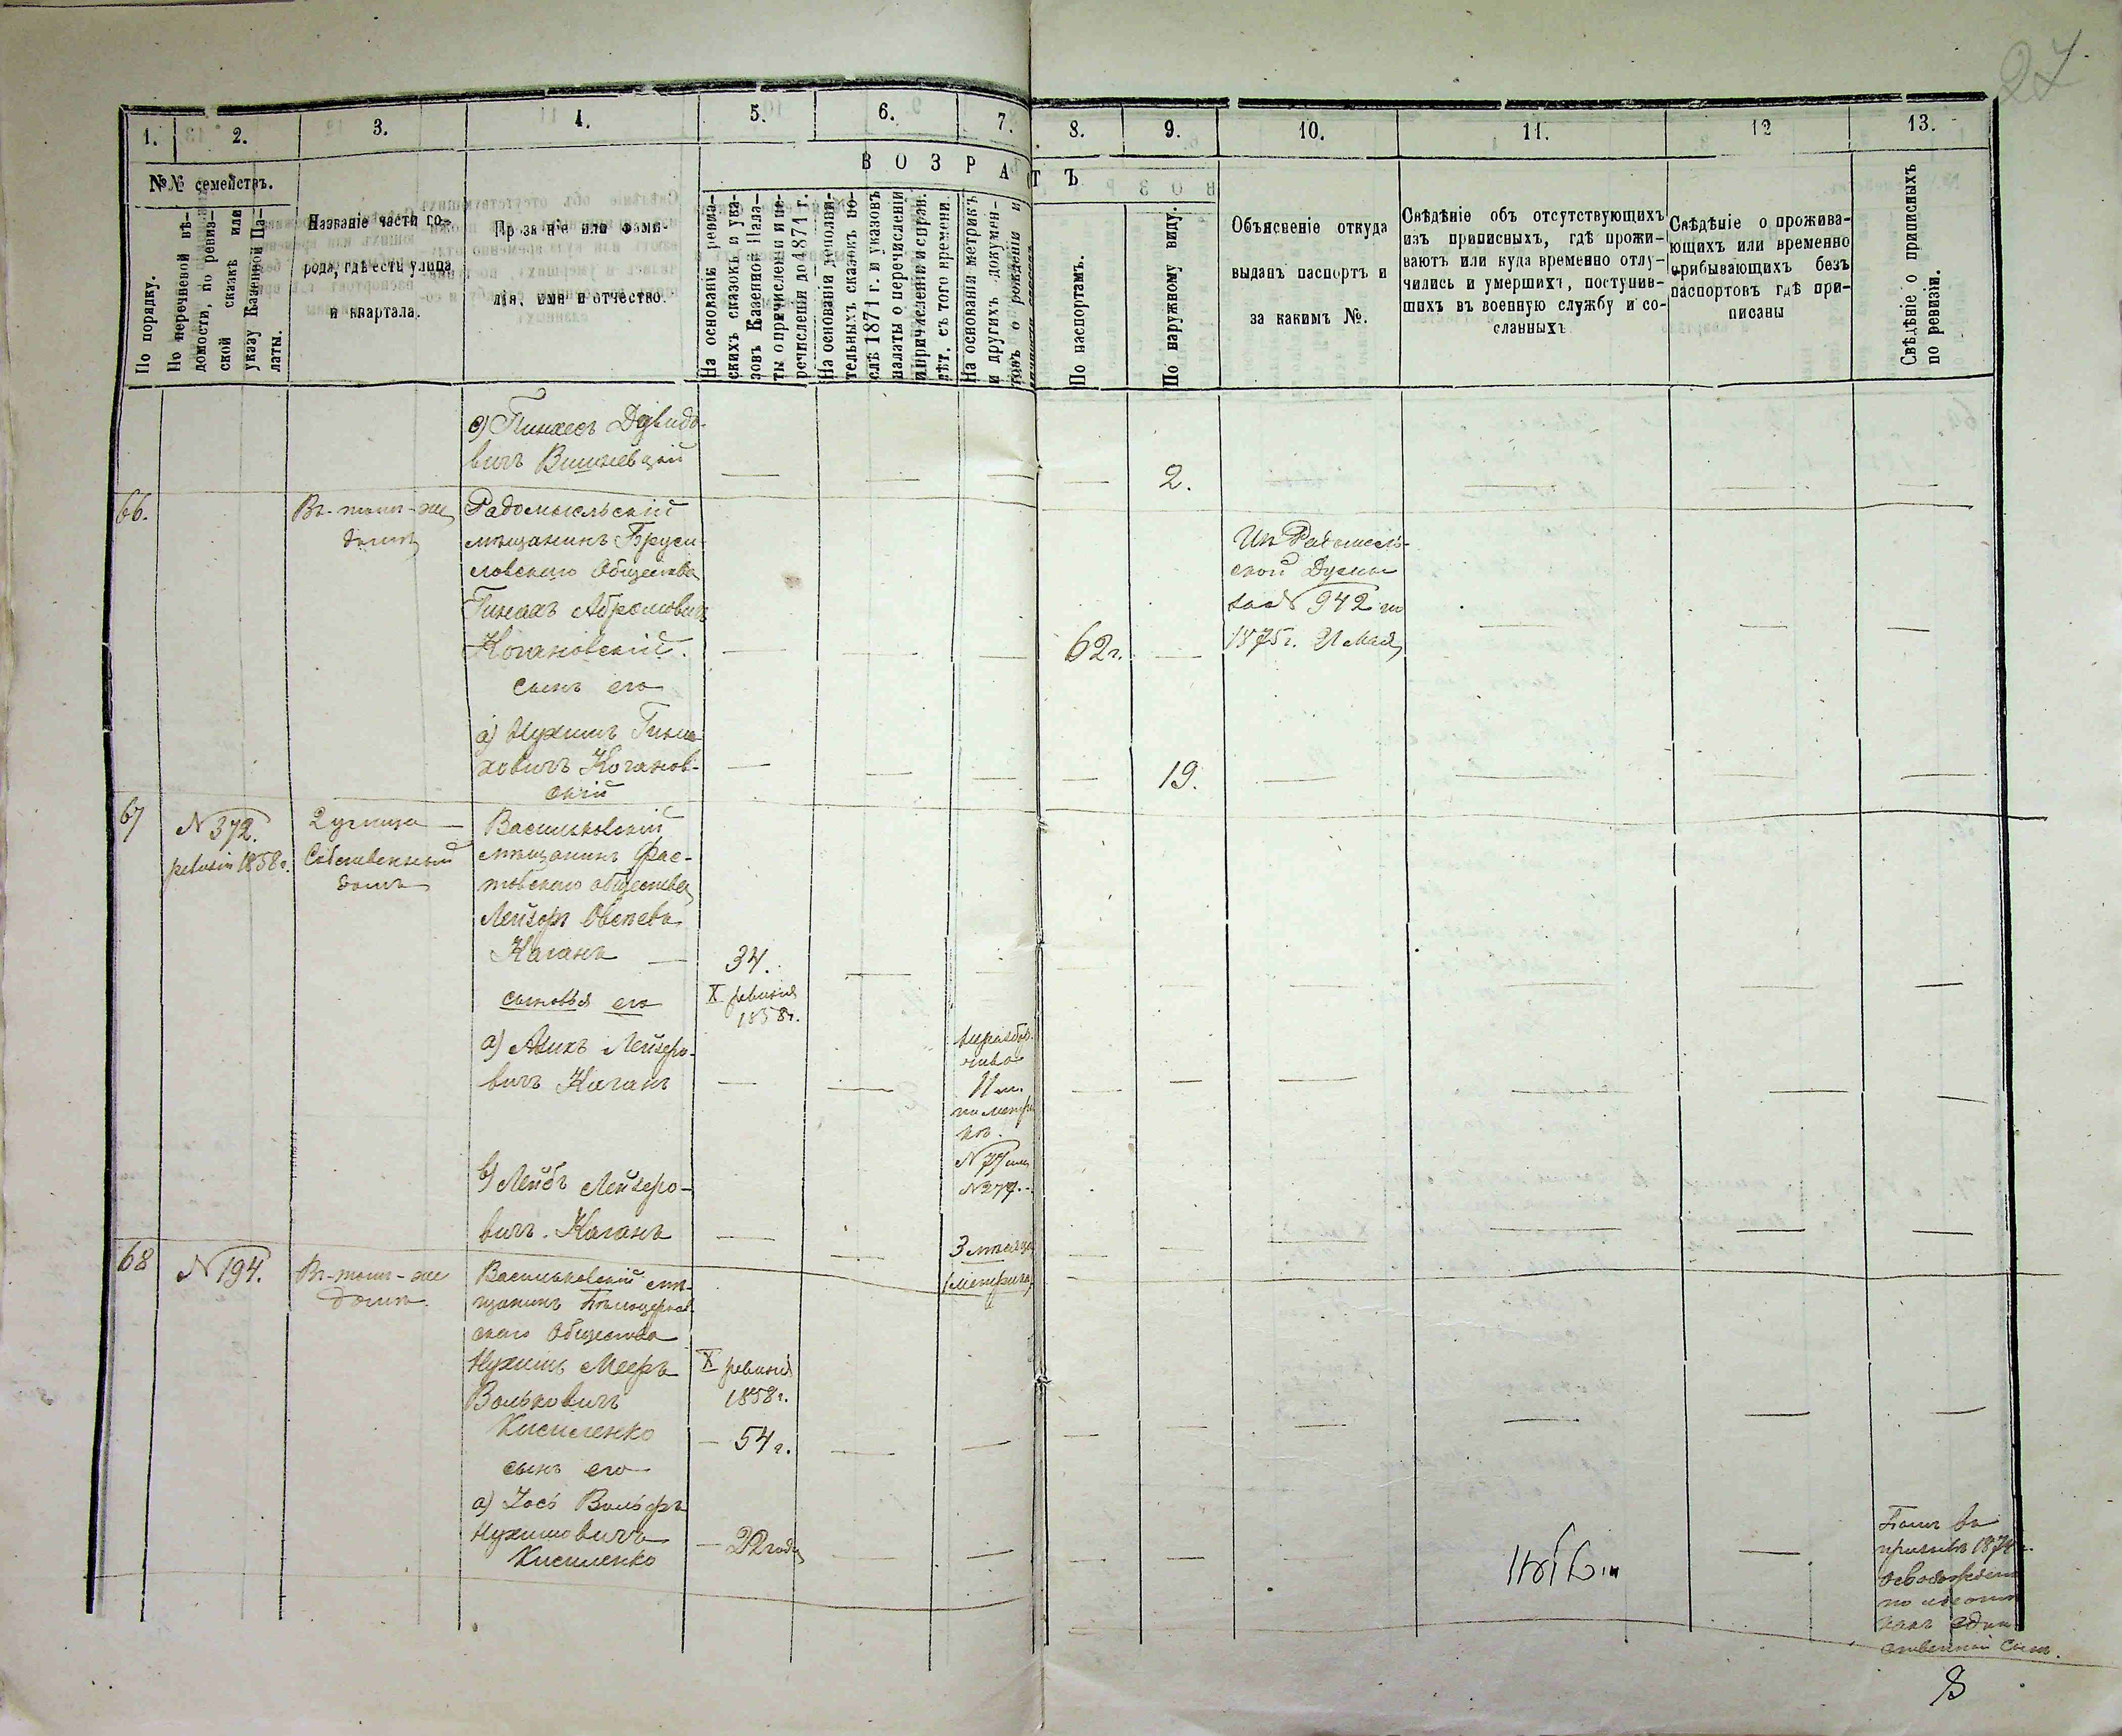 27
1.
2.
3.
4.
5.
6.
7.
8.
9.
10.
11.
12
13.
№№ семействъ.
ВОЗРАСТЪ
По порядку.
По перечневой вѣ-
домости, по ревиз-
ской сказкѣ или
указу Казенной Па-
латы.
Названіе части го-
рода, гдѣ есть улица
и квартала.
Прозвніе или фами-
лія, имя и отчество.
На основаніи ревиз-
скихъ сказокъ и ука-
зовъ Казенной Пала-
ты о причисленіи и пе-
речисленіи до 1871 г.
На основаніи дополни-
тельныхъ сказокъ по-
слѣ 1871 г. и указовъ
палаты о перечисленіи
и причисленіи и справ.
лѣт. съ того времени.
На основаніи метрикъ
и другихъ докумен-
товъ о рожденіи и
По паспортамъ.
По наружному виду.
Объясненіе откуда
выданъ паспортъ и
за какимъ №.
Свѣдѣніе объ отсутствующихъ
изъ приписныхъ, гдѣ прожи-
ваютъ или куда временно отлу-
чились и умершихъ, поступив-
шихъ въ военную службу и со-
сланныхъ
Свѣдѣніе о прожива-
ющихъ или временно
прибывающихъ безъ
паспортовъ гдѣ при-
писаны
Свѣдѣніе о приписныхъ
по ревизіи.
е) Пинхесъ Давидо-
вичъ Вишневцкій
2.
66.
Въ томъ-же
домѣ
Радомысльскій
мѣщанинъ Бруси-
ловскаго Общества
Абрамовичъ
Когановскій.
62 г.
Изъ Радомысль-
ской Думы
за № 942
1875 г. 21 Мая
сынъ его
а) Нухимъ
ховичъ Коганов-
скій
19.
67
№ 372.
ревизіи 1858 г.
2 улица
Собственный
домъ
Васильковскій
мѣщанинъ Фас-
товскаго общества
Лейзеръ Овсеевъ
Каганъ
34.
X ревизія
1858 г.
сыновья его
а) Лейзеро-
вичъ Каганъ
11 л.
по метри
кѣ.
№ 77 или
№ 277.
б) Лейбъ Лейзеро-
вичъ Каганъ
3 мѣсяца
метрика
68
№ 194.
Въ томъ-же
домѣ.
Васильковскій мѣ-
щанинъ Бѣлоцерков
скаго Общества
Нухимъ Мееръ
Вольковичъ
Кисиленко
X ревизія
1858 г.
54 г.
сынъ его
а) Іось Вольфъ
Нухимовичъ
Кисиленко
22 года
Былъ въ
призывѣ 1874 г.
освобожденъ
по льготѣ
какъ един
ственный сынъ.